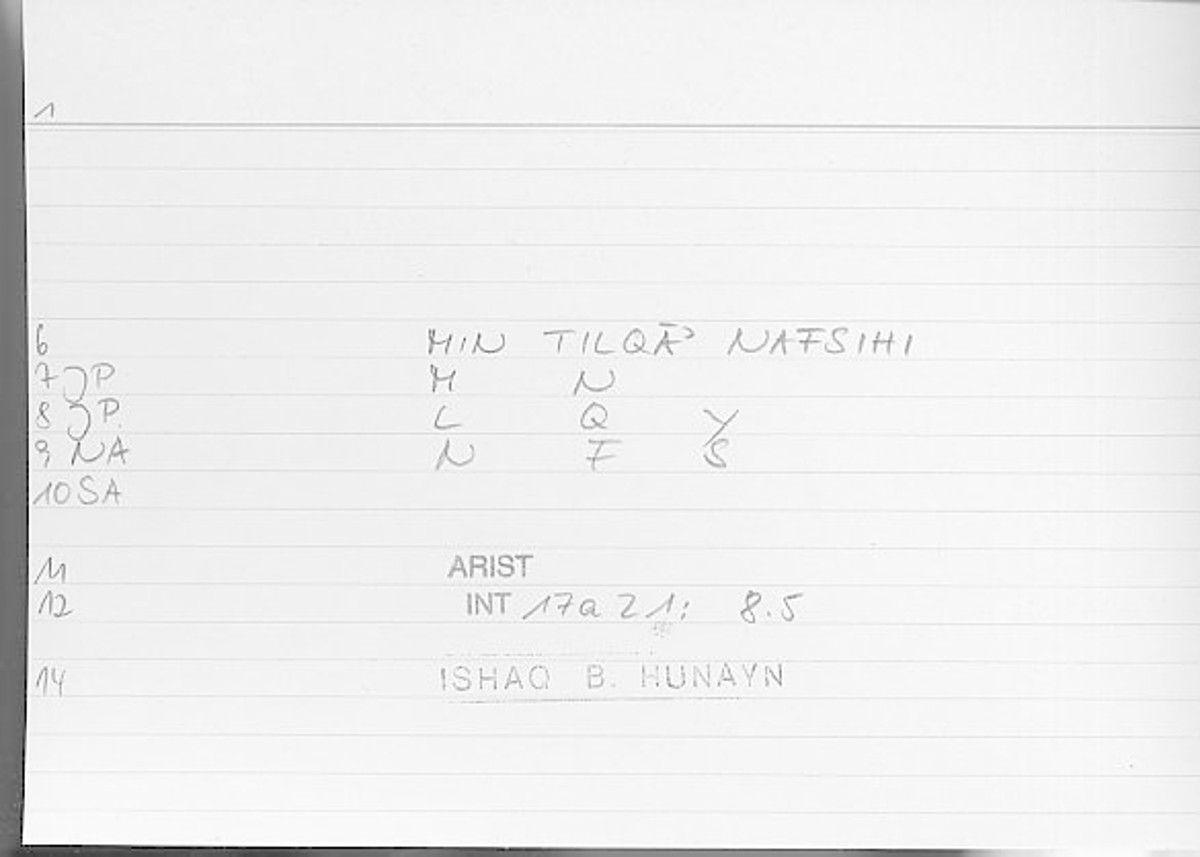 1
6 MIN TILQĀʾ NAFSIHI
7 P M N
8 P. L Q Y
9 NA N F S
10 SA
11 ARIST
12 INT 17a 21: 8.5
14 ISHAQ B. HUNAYN